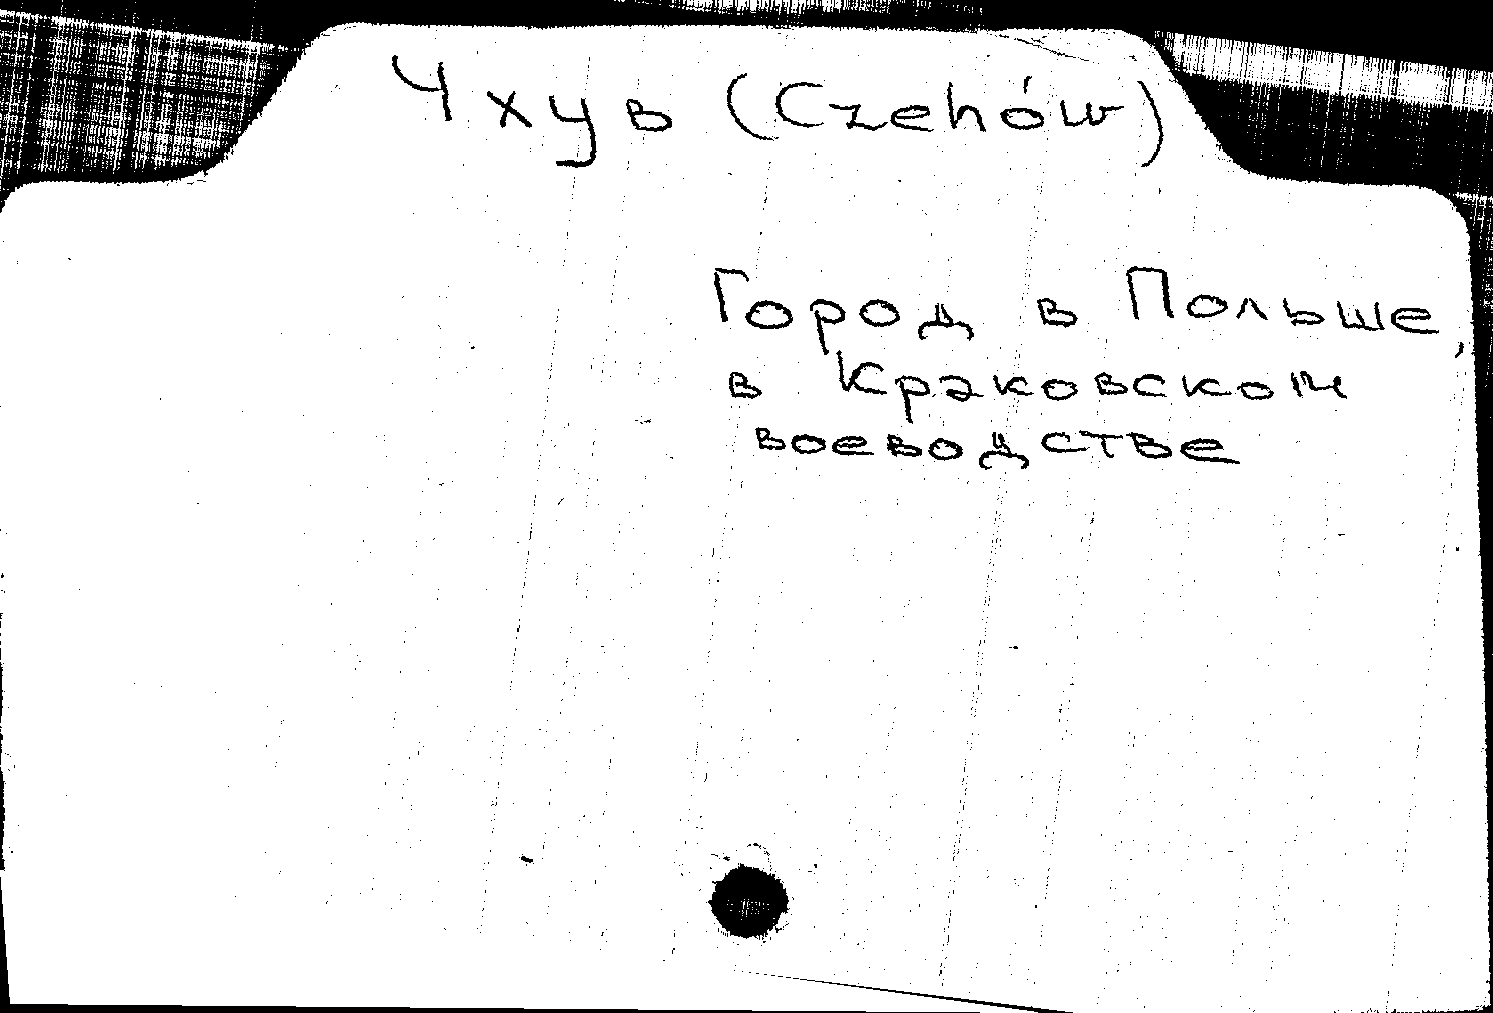 Чхув (Czehów)
Город в Польше,
в Краковском
воеводстве